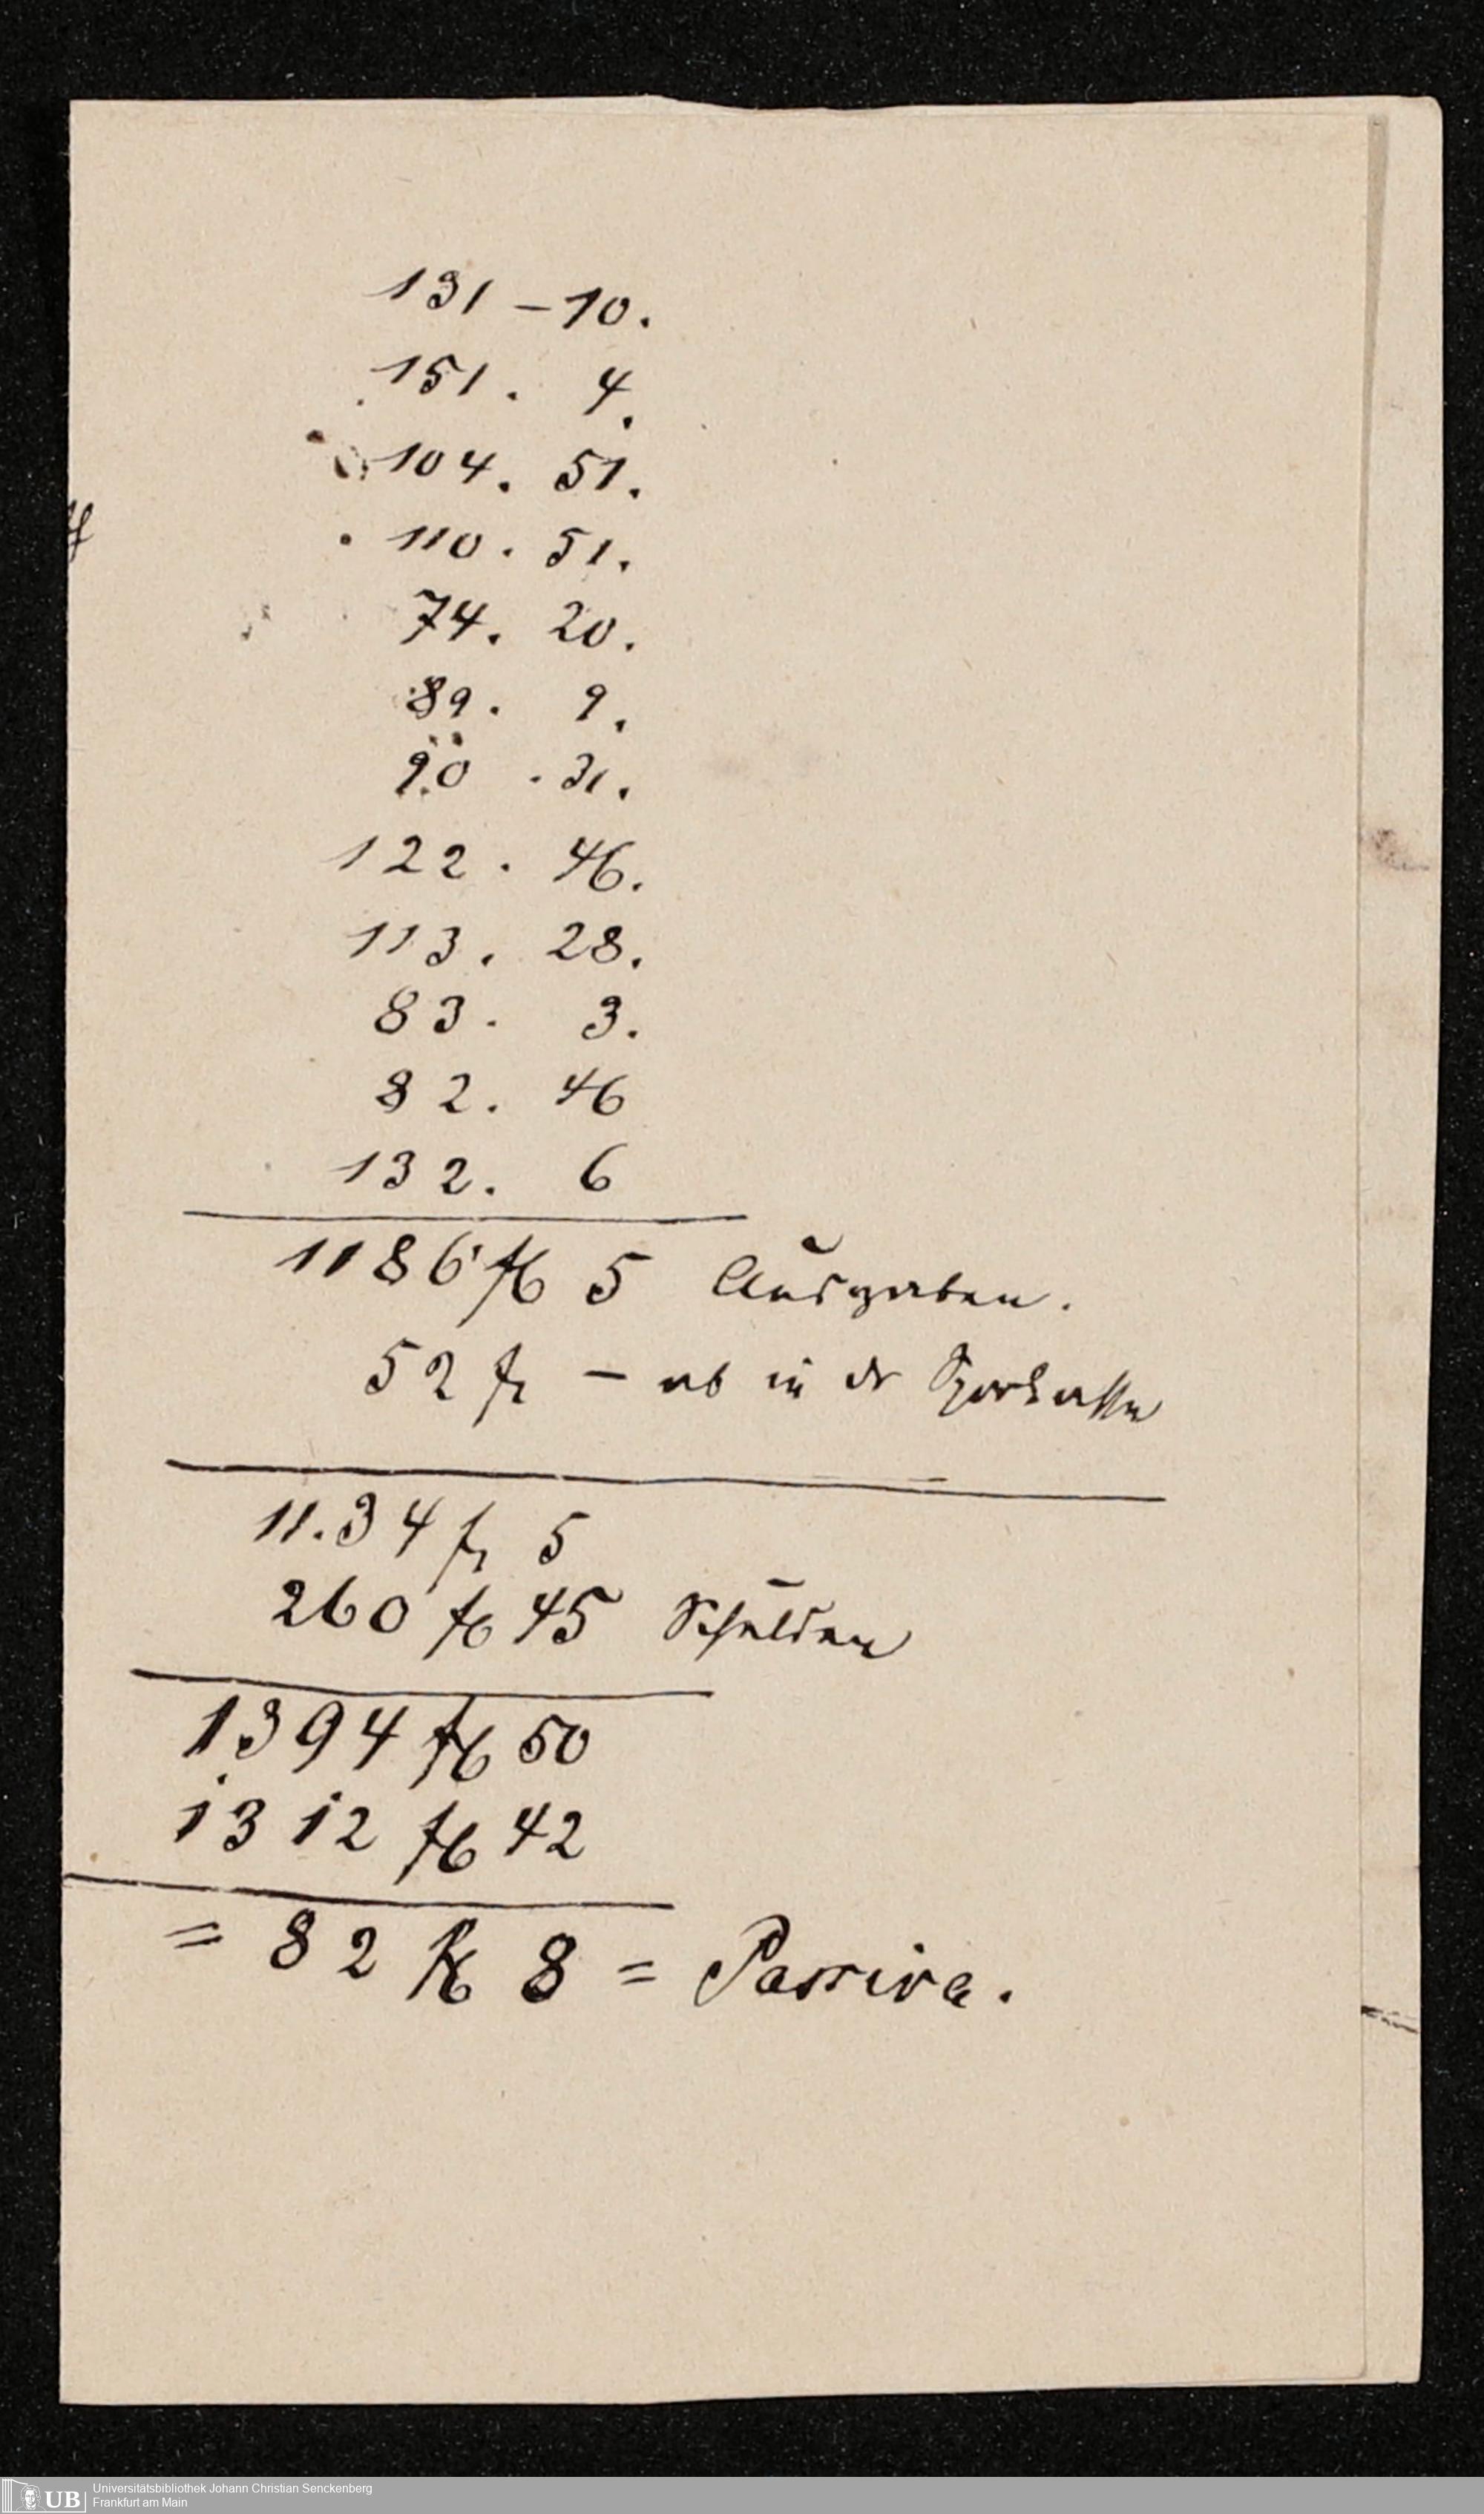 131 – 10.
151. 4.
104. 51.
110. 51.
74. 20.
89. 9.
90. 31.
122. 46.
113. 28.
83. 3.
82. 46
132. 6
1186 fl 5 Ausgaben.
52 fl – ab in dr Sparkasse
11.34 fl 5
260 fl 45 Schulden
1394 fl 50
1312 fl 42
= 82 fl 8 = Passiva.
UB
Universitätsbibliothek Johann Christian Senckenberg
Frankfurt am Main